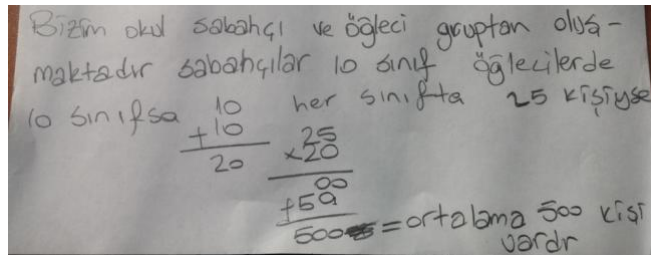 Bizim okul sabahçı ve öğleci gruptan oluş-
maktadır sabahçılar 10 sınıf öğlecilerde
10 sınıfsa 10 her sınıfta 25 kişiyse
+10 25
20 x20
00
+50
500 = ortalama 500 kişi
vardır